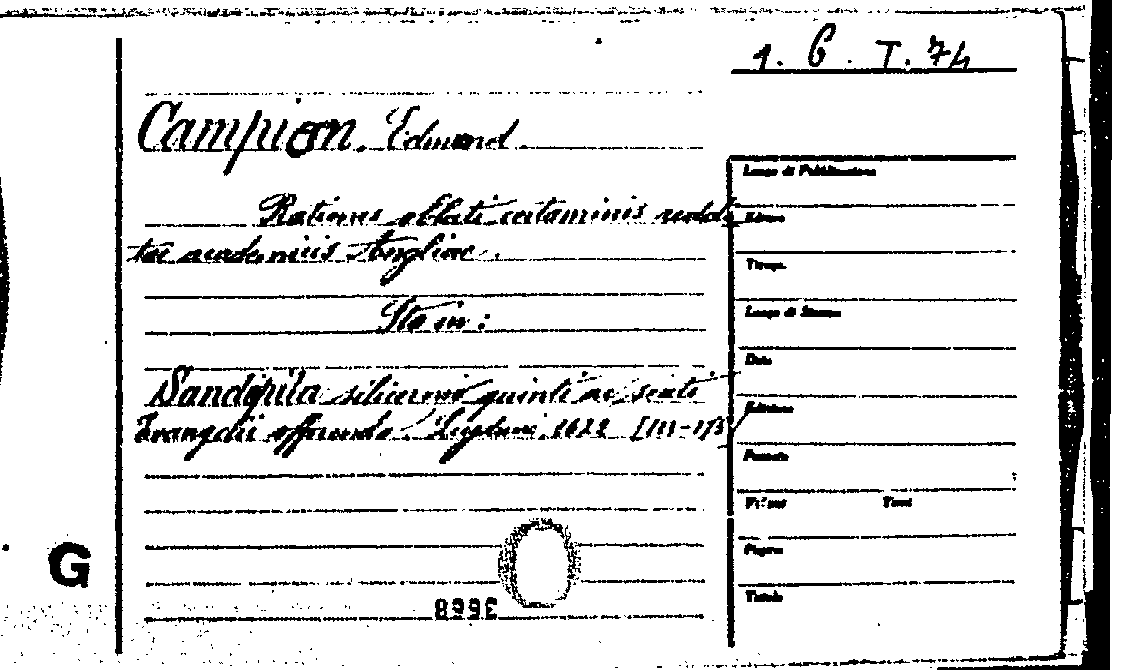 1. 6. T. 74
Campion, Edmund.
Rationes oblati certaminis reddi
tae academicis Angliae.
Sta in:
Sandapila silicernio quinti ac sexti
Evangelii efferendo. Lugduni, 1622 [111-175]
Luogo di Pubblicazione
Editore
Tipogr.
Luogo di Stampa
Data
Edizione
Formato
Volumi Tomi
Pagine
Titolo
G
3668